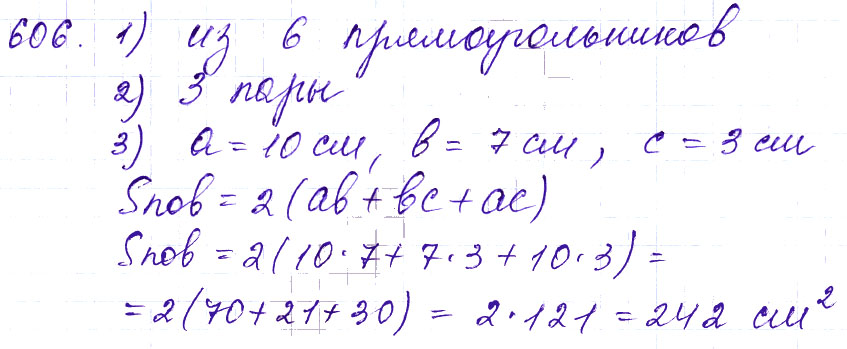 606. 1) из 6 прямоугольников
2) 3 пары
3) a = 10 см, b = 7 см, c = 3 см
Sпов = 2 (ab + bc + ac)
Sпов = 2 (10 · 7 + 7 · 3 + 10 · 3) =
= 2 (70 + 21 + 30) = 2 · 121 = 242 см²